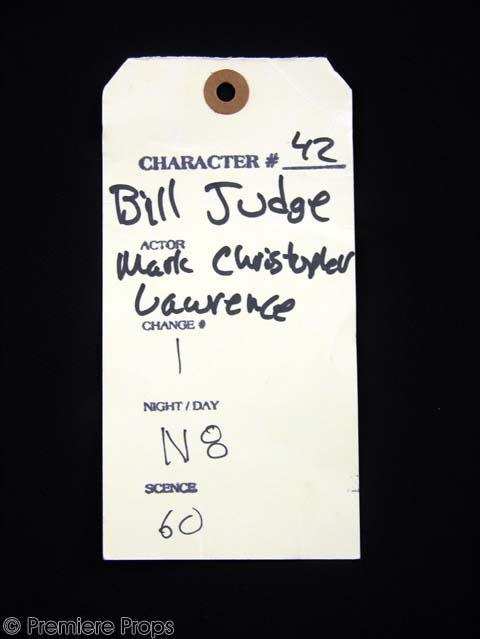 CHARACTER # 42
Bill Judge
ACTOR
Mark Christopher
Lawrence
CHANGE #
1
NIGHT / DAY
N8
SCENCE
60
© Premiere Props